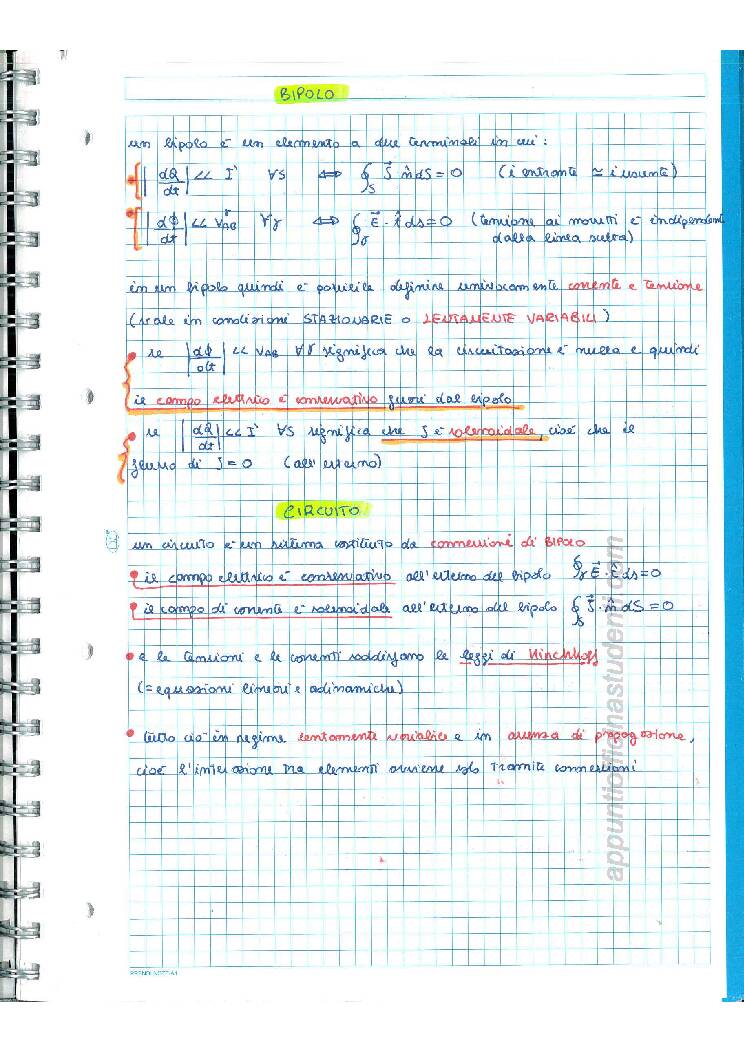 BIPOLO
un bipolo è un elemento a due terminali in cui:
|dQ/dt| << I ∀S ⟺ ∮_S J⃗ n̂ dS = 0 (i entrante ≃ i uscente)
|dΦ/dt| << V_AB ∀γ ⟺ ∮_γ E⃗ · t̂ ds = 0 (tensione ai morsetti è indipendente
dalla linea scelta)
in un bipolo quindi è possibile definire univocamente corrente e tensione
(vale in condizioni STAZIONARIE o LENTAMENTE VARIABILI)
• se |dΦ/dt| << V_AB ∀γ significa che la circuitazione è nulla e quindi
il campo elettrico è conservativo fuori dal bipolo
• se |dQ/dt| << I ∀S significa che J è solenoidale, cioè che il
flusso di J = 0 (all'esterno)
CIRCUITO
un circuito è un sistema costituito da connessioni di BIPOLO
• il campo elettrico è conservativo all'esterno del bipolo ∮_γ E⃗ · t̂ ds = 0
• il campo di corrente è solenoidale all'esterno del bipolo ∮_S J⃗ · n̂ dS = 0
• e le tensioni e le correnti soddisfano le leggi di Kirchhoff
(= equazioni lineari e adinamiche)
• tutto ciò in regime lentamente variabile e in assenza di propagazione,
cioè l'interazione tra elementi avviene solo tramite connessioni
appuntiofficinastudenti.com